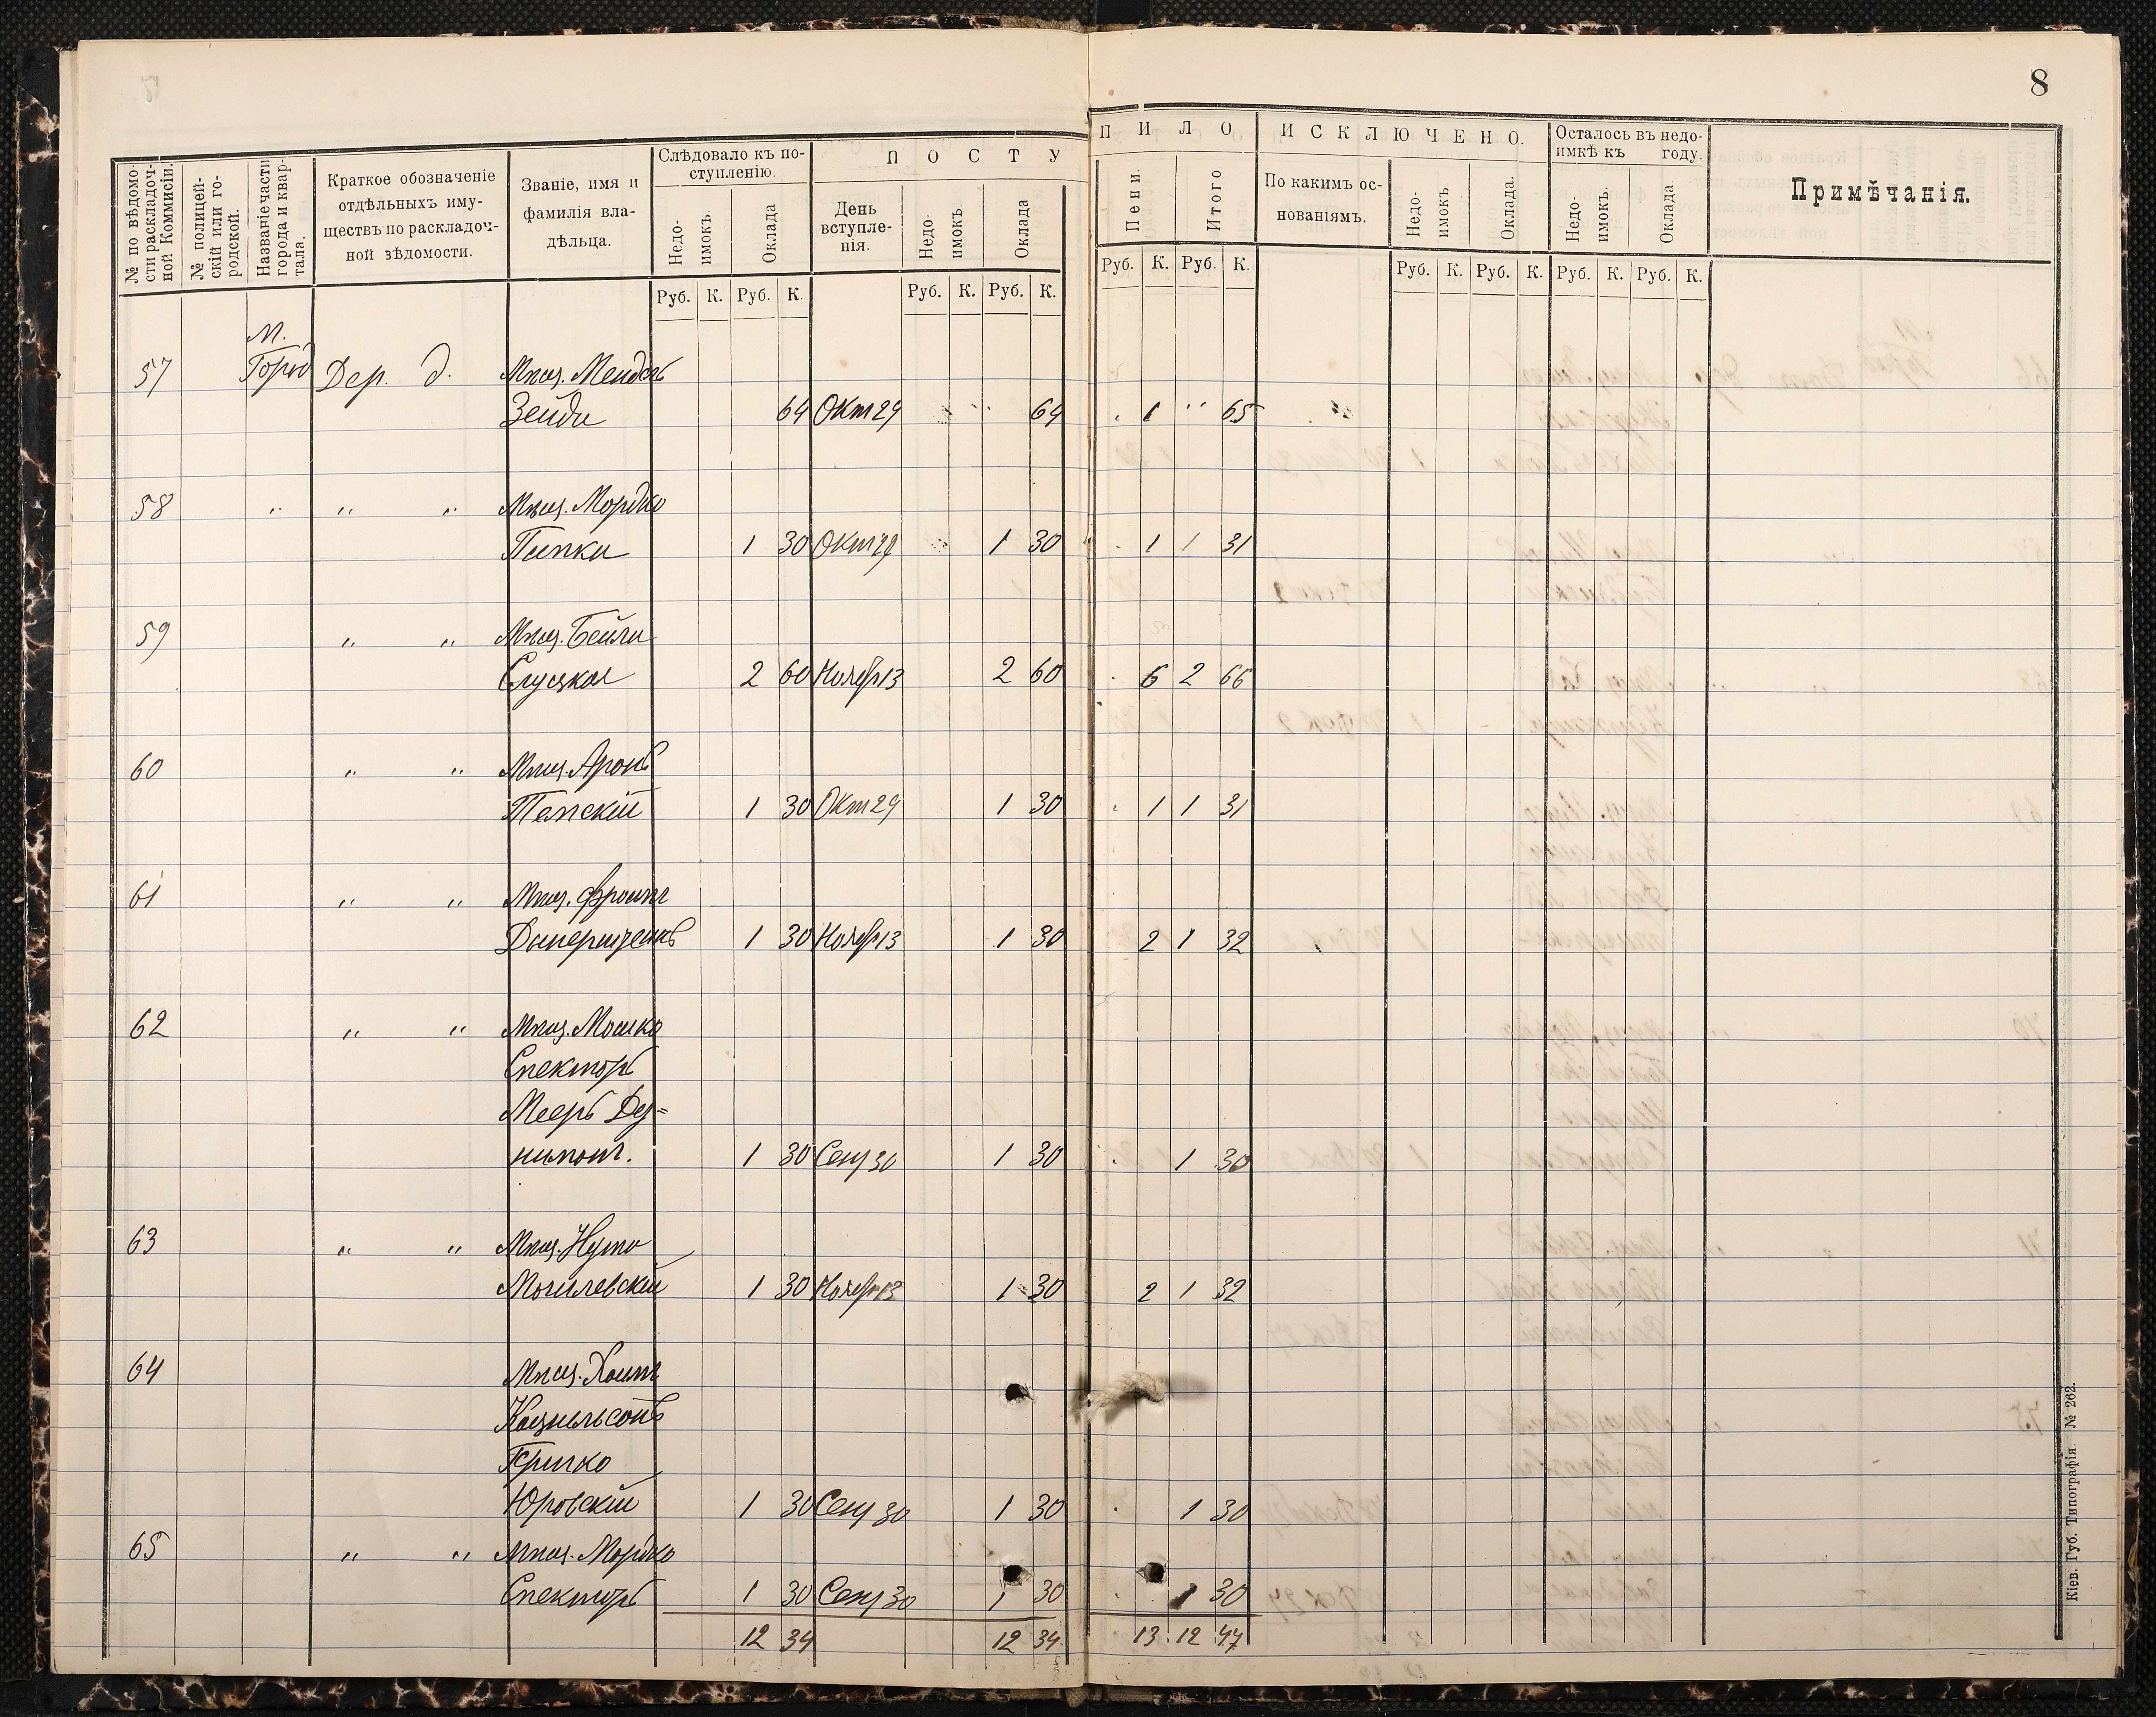 8
№ по вѣдомости раскладочной Коммисіи.
№ полицейскій или городской.
Названіе части города и квартала.
Краткое обозначеніе отдѣльныхъ имуществъ по раскладочной зѣдомости.
Званіе, имя и фамилія владѣльца.
Слѣдовало къ поступленію.
Недоимокъ.
Оклада
ПОСТУПИЛО
День вступленія.
Недоимокъ.
Оклада
Пени.
Итого
ИСКЛЮЧЕНО.
По какимъ основаніямъ.
Недоимокъ
Оклада.
Осталось въ недоимкѣ къ году.
Недоимокъ.
Оклада
Примѣчанія.
Руб. К. Руб. К. Руб. К. Руб. К. Руб. К. Руб. К. Руб. К. Руб. К. Руб. К. Руб. К.
М.
57 Город Дер. д. Мѣщ. Мендель
Зейди 64 Окт 29 64 1 " 65
58 " " " Мѣщ. Мордко
Пипки 1 30 Окт 29 1 30 1 1 31
59 " " Мѣщ. Бейла
Слуцкая 2 60 Ноябр 13 2 60 6 2 66
60 " " Мѣщ. Аронъ
1 30 Окт 29 1 30 1 1 31
61 " " Мѣщ. Фроимъ
1 30 Ноябр 13 1 30 2 1 32
62 " " Мѣщ. Мошко
Спекторъ
Мееръ
1 30 Сен 30 1 30 1 30
63 " " Мѣщ. Нута
Могилевскій 1 30 Ноябр 13 1 30 2 1 32
64 Мѣщ. Хаимъ
Кацнельсонъ
Гричко
Юровскій 1 30 Сен 30 1 30 1 30
65 " " Мѣщ. Мордко
Спекторъ 1 30 Сен 30 1 30 1 30
12 34 12 34 13 12 47
Кіев. Губ. Типографія № 262.